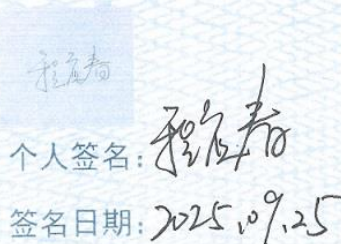 程宜春
个人签名:程宜春
签名日期:2025.09.25